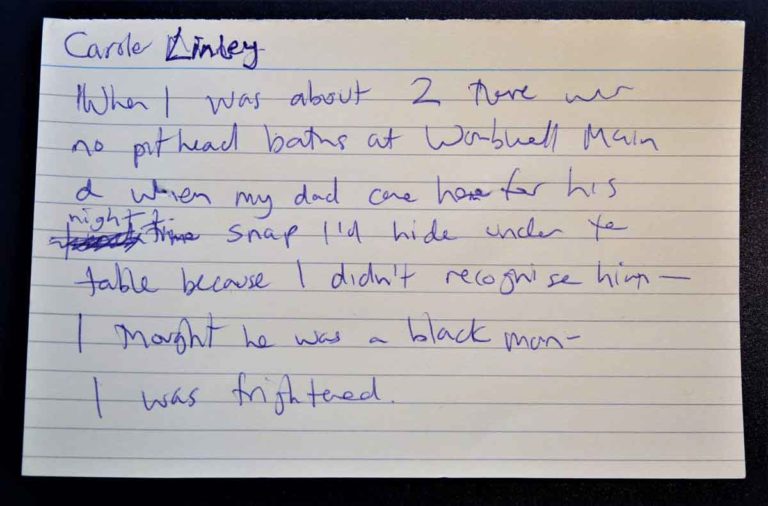 Carole Linley
When I was about 2 there was
no pit head baths at Wombwell Main
& when my dad came home for his
night time snap I'd hide under the
table because I didn't recognise him —
I thought he was a black man -
I was frightened.